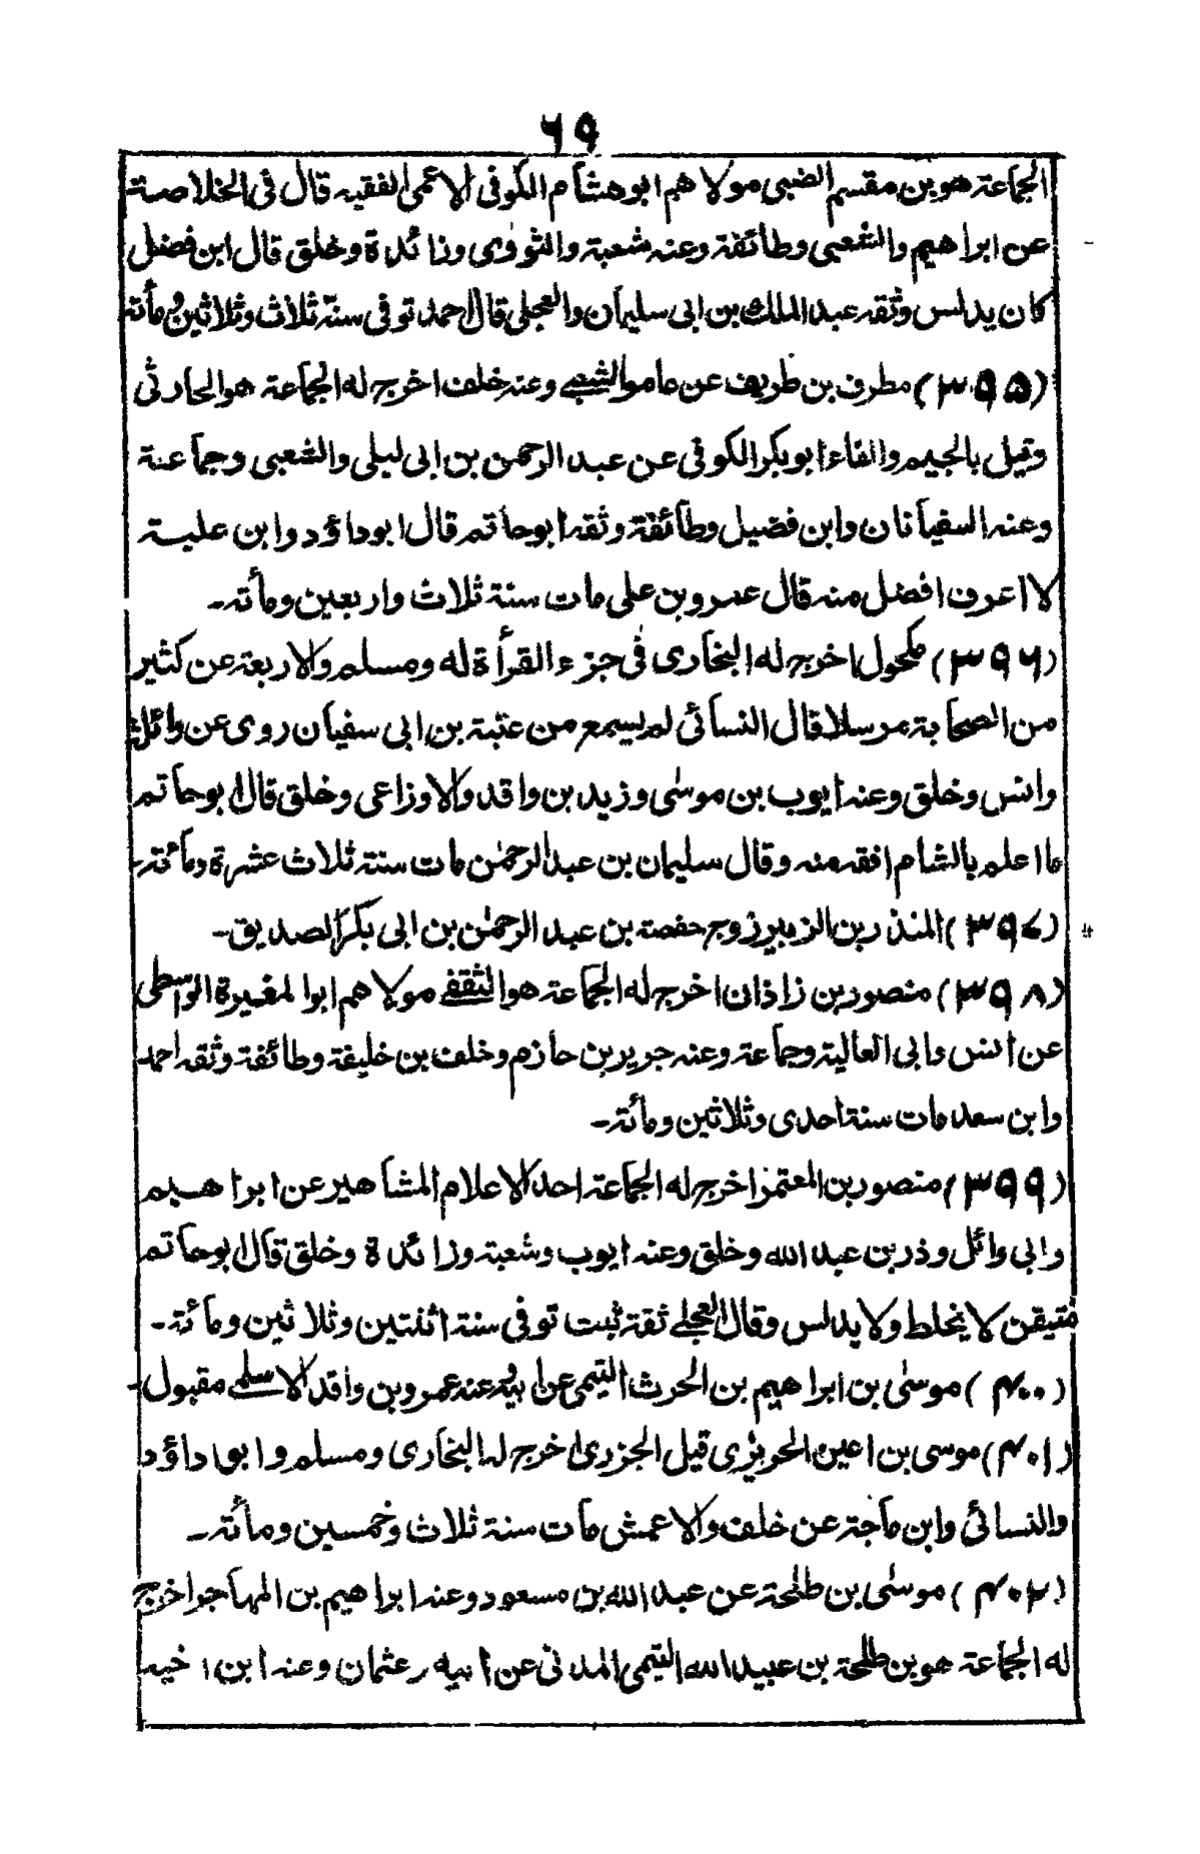 ٦٩
الجماعة هو بن مقسم الضبي مولاهم ابو هشام الكوفي الاعمى الفقيه قال في الخلاصة
عن ابراهيم والشعبي وطائفة وعنه شعبة والثورى وزائدة وخلق قال ابن فضل
كان يدلس وثقه عبد الملك بن ابي سليمان والعجلي قال احمد توفي سنة ثلاث وثلاثين ومأئة
(٣٩٥) مطرف بن طريف عن عامر الشعبي وعنه خلف اخرج له الجماعة هو الحارثي
وقيل بالجيم والفاء ابو بكر الكوفي عن عبد الرحمن بن ابي ليلى والشعبي وجماعة
وعنه السفيانان وابن فضيل وطائفة وثقه ابو حاتم قال ابو داؤد وابن علية
لا اعرف افضل منه قال عمرو بن علي مات سنة ثلاث واربعين ومأئة۔
(٣٩٦) مكحول اخرج له البخارى في جزء القرأة له ومسلم والاربعة عن كثير
من الصحابة مرسلا قال النسائي لم يسمع من عتبة بن ابي سفيان روى عن واثلة
وانس وخلق وعنه ايوب بن موسى وزيد بن واقد والاوزاعي وخلق قال ابو حاتم
ما اعلم بالشام افقه منه وقال سليمان بن عبد الرحمن مات سنة ثلاث عشرة ومائة۔
(٣٩٧) المنذر بن الزبير زوج حفصة بن عبد الرحمن بن ابي بكر الصديق۔
(٣٩٨) منصور بن زاذان اخرج له الجماعة هو الثقفي مولاهم ابو المغيرة الواسطي
عن انس وابي العالية وجماعة وعنه جرير بن حازم وخلف بن خليفة وطائفة وثقه احمد
وابن سعد مات سنة احدى وثلاثين ومأئة۔
(٣٩٩) منصور بن المعتمر اخرج له الجماعة احد الاعلام المشاهير عن ابراهيم
وابي وائل وذر بن عبد الله وخلق وعنه ايوب وشعبة وزائدة وخلق قال ابو حاتم
متيقن لا يخلط ولا يدلس وقال العجلي ثقة ثبت توفي سنة اثنتين وثلاثين ومائة۔
(٤٠٠) موسى بن ابراهيم بن الحرث التيمي عن ابيه وعنه عمرو بن واقد الاسلمي مقبول۔
(٤٠١) موسى بن اعين الحريزى قيل الجزرى اخرج له البخارى ومسلم وابو داؤد
والنسائي وابن ماجة عن خلف والاعمش مات سنة ثلاث وخمسين ومأئة۔
(٤٠٢) موسى بن طلحة عن عبد الله بن مسعود وعنه ابراهيم بن المهاجر اخرج
له الجماعة هو بن طلحة بن عبيد الله التيمي المدني عن ابيه وعثمان وعنه ابن اخيه